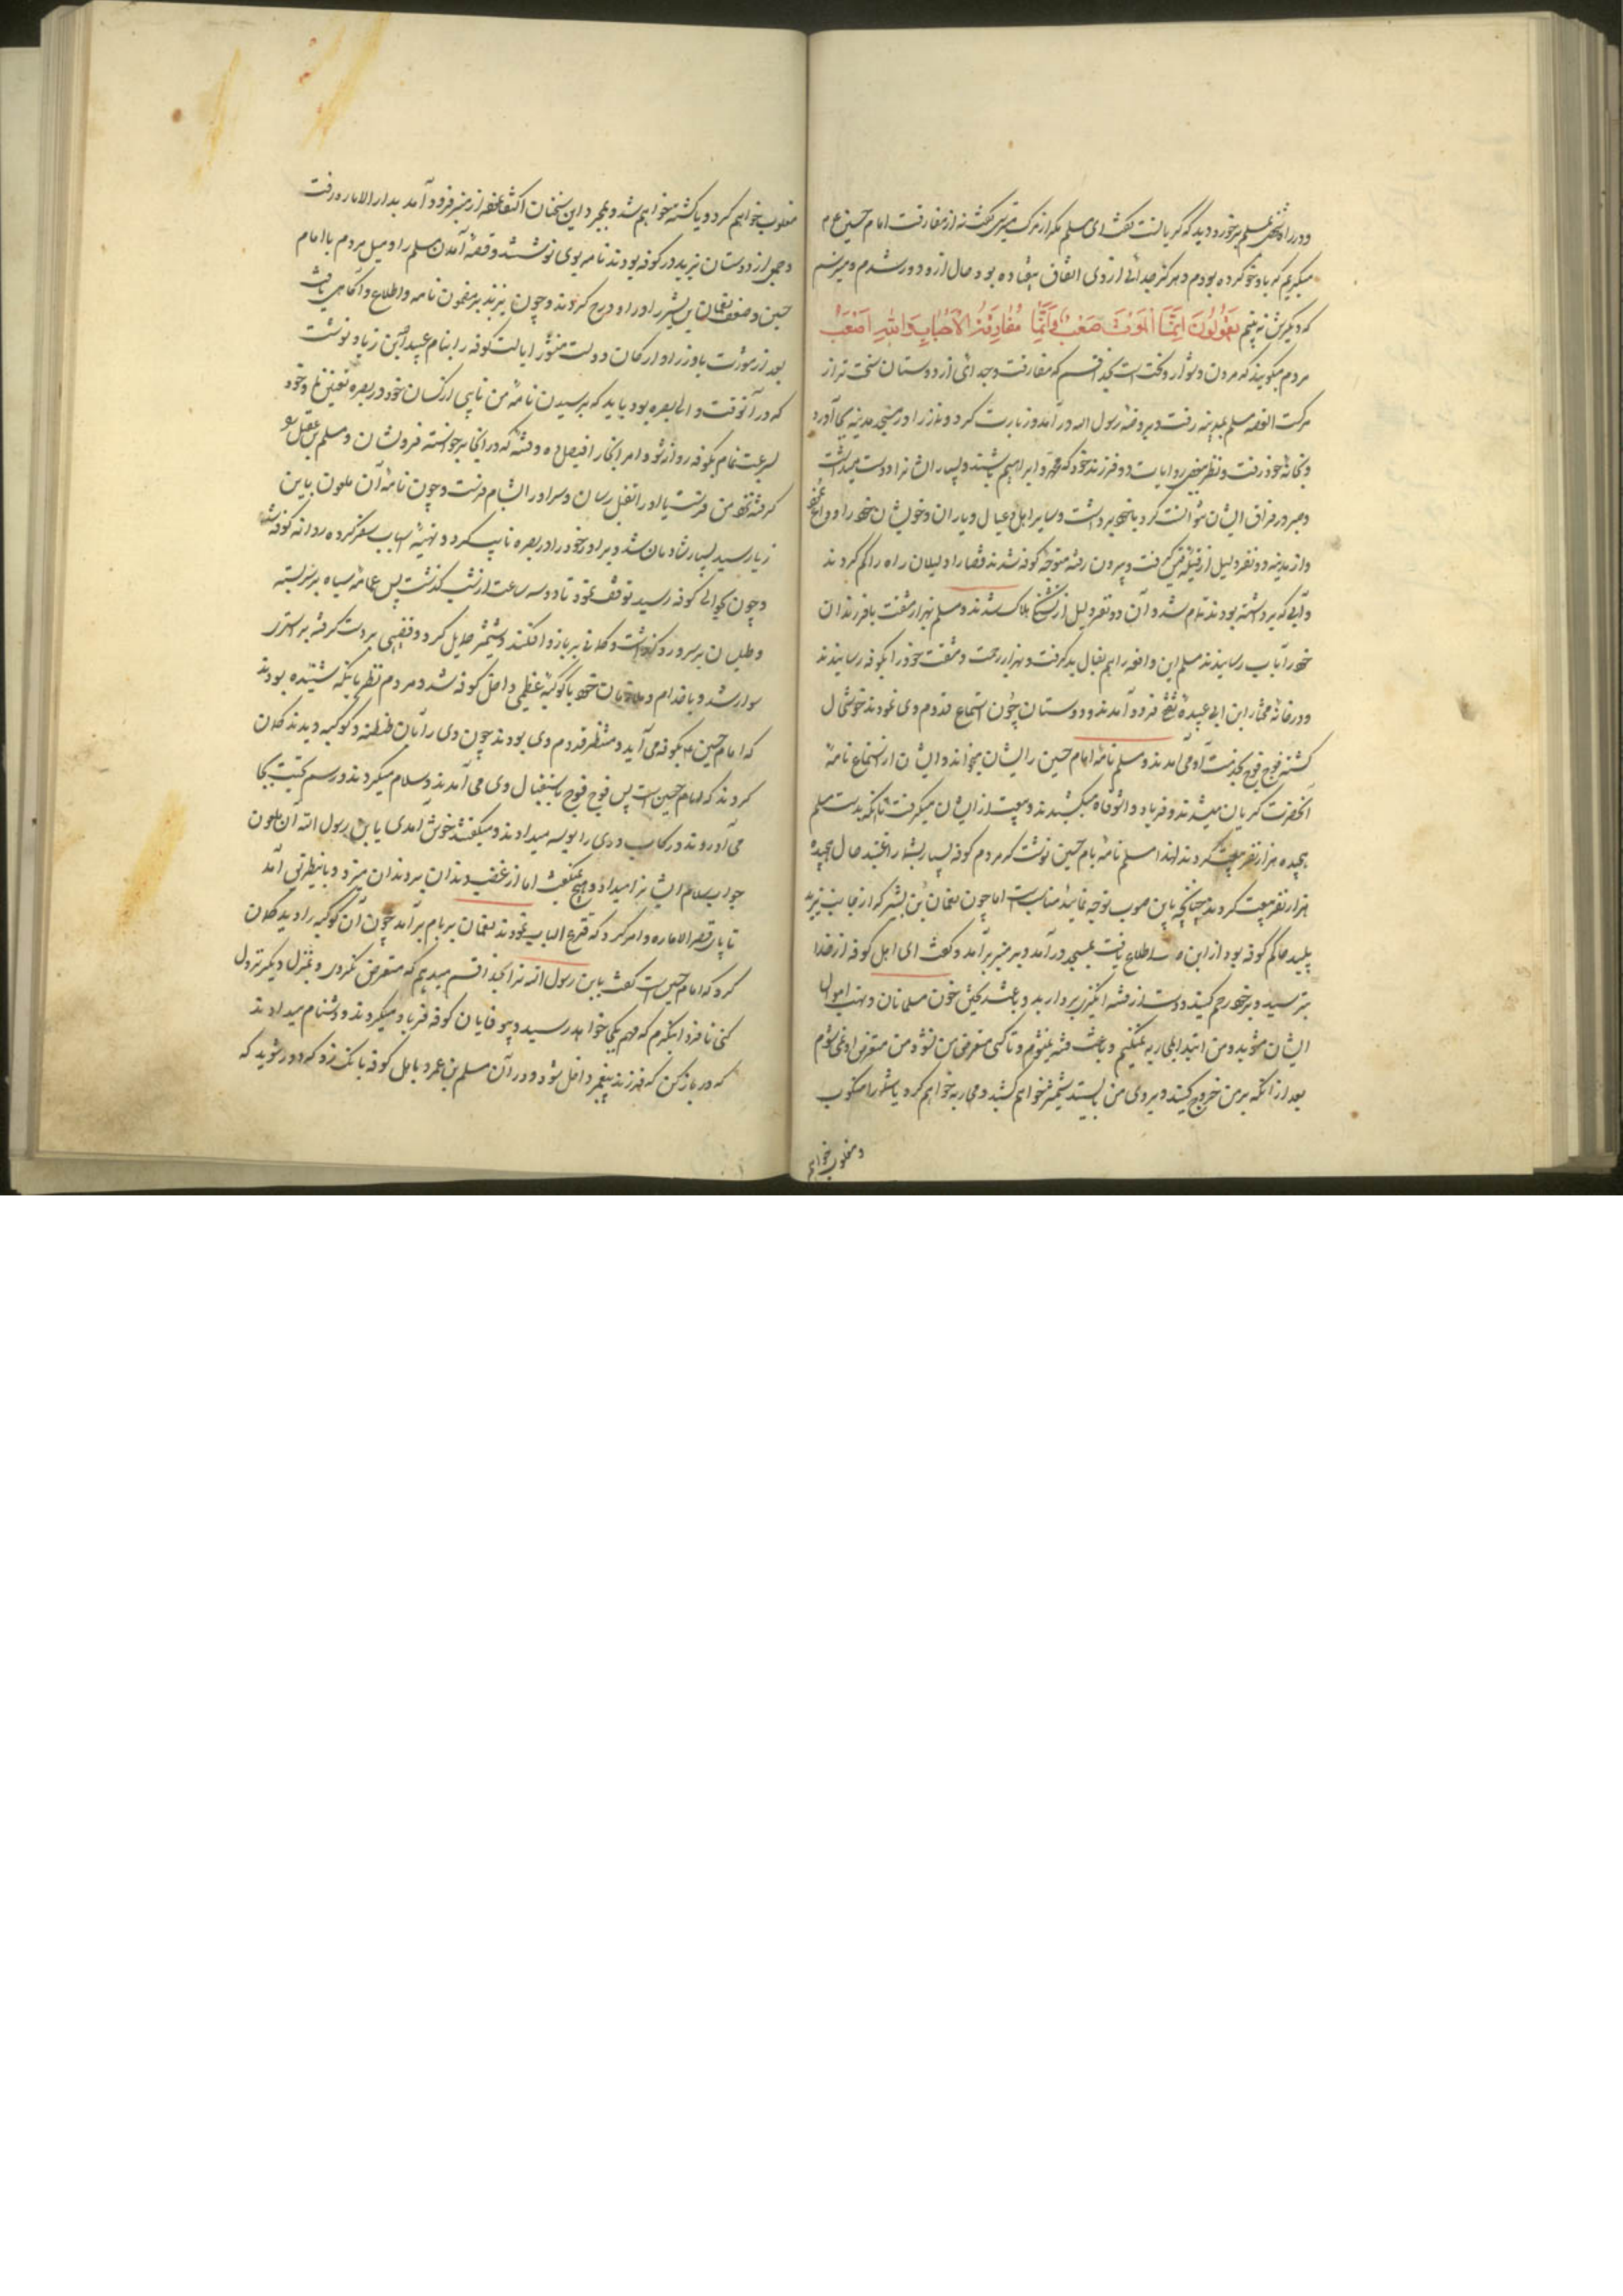 ودر راه شخصی بمسلم برخورد و دید که گریانست گفت ای مسلم مگر از مرگ میترسی گفت نه از مفارقت امام حسین ع م
میگریم که باو خو کرده بودم و هرگز جدائی از وی اتفاق نیفتاده بود و حال از و دور شدم و میترسم
که دیگرش نه بینم يَقُولُونَ اِنَّ الْمَوْتَ صَعْبٌ وَاِنَّمَا مُفَارَقَةُ الْاَحْبَابِ وَاللهِ اَصْعَبُ
مردم میگویند که مردن دشوار و سخت است بخدا قسم که مفارقت و جدائی از دوستان سخت تر از
مرکست القصه مسلم بمدینه رفت و بروضه رسول الله در آمد و زیارت کرد و نماز را در مسجد مدینه بجا آورد
و بخانه خود رفت و دو فرزند خود که محمد و ابراهیم باشند و بسیار ایشانرا دوست میداشت
و صبر در فراق ایشان نتوانست کرد با خود برداشت و سایر اهل و عیال و یاران و خویشان خود را وداع نمود
و از مدینه دو نفر دلیل از قبیله قیس گرفت و بیرون رفته متوجه کوفه شدند قضا را دلیلان راه را گم کردند
و آبی که برداشته بودند تمام شد و آن دو نفر دلیل از تشنگی هلاک شدند و مسلم بهزار مشقت با فرزندان
خود را بآب رسانیدند مسلم این واقعه را بفال بد گرفت و بهزار زحمت و مشقت خود را بکوفه رسانیدند
و در خانه مختار ابن ابی عبیده ثقفی فرود آمدند و دوستان چون استماع قدوم وی نمودند خوشحال
گشته فوج فوج بخدمت او می آمدند و مسلم نامه امام حسین را بایشان میخواند و ایشان از استماع نامه
آنحضرت گریان میشدند و فریاد و اشوقاه میکشیدند و بیعت از ایشان میگرفت تا آنکه بدست مسلم
هیجده هزار نفر بیعت کردند لهذا مسلم نامه بامام حسین نوشت که مردم کوفه بسیار بشما راغبند حال هیجده
هزار نفر بیعت کردند چنانچه باین صوب توجه نمائید مناسبست اما چون نعمان بن بشیر که از جانب یزید
پلید حاکم کوفه بود از این اطلاع یافت بمسجد در آمد و بر منبر برآمد و گفت ای اهل کوفه از خدا
بترسید و بر خود رحم کنید و دست از فتنه انگیزی بردارید و باعث ریختن خون مسلمانان و نهب اموال
ایشان مشوید و من ابتدا بمحاربه نمیکنم و باعث فتنه نمیشوم و تا کسی متعرض من نشود من متعرض او نمی شوم
بعد از آنکه بر من خروج کنید و بروی من بایستید شمشیر خواهم کشید و محاربه خواهم کرد یا شما را منکوب
و مغلوب خواهم
مغلوب خواهم کرد و یا کشته خواهم شد و بمجرد این سخنان اکتفا نموده از منبر فرود آمد بدار الاماره رفت
و جمعی از دوستان یزید در کوفه بودند نامه بوی نوشتند و قصه آمدن مسلم را و میل مردم با امام
حسین و ضعف نعمان بن بشیر را در او درج کردند و چون یزید بر مضمون نامه و اطلاع و آگاهی یافت
بعد از مشورت با وزرا و ارکان دولت منشور ایالت کوفه را بنام عبید الله بن زیاد نوشت
که در آنوقت والی بصره بود باید که برسیدن نامه من نایبی از کسان خود در بصره تعیین نما و خود
بسرعت تمام بکوفه روانه شو و امر آنجا را فیصل ده و فتنه که در آنجا برخواسته فرو نشان و مسلم بن عقیل را
گرفته نزد من فرست یا او را بقتل رسان و سر او را بشام فرست و چون نامه آن ملعون باین
زیاد رسید بسیار شادمان شد و برادر خود را در بصره نایب کرد و تهیه اسباب سفر کرده روانه کوفه شد
و چون بحوالی کوفه رسید توقف نمود تا دو سه ساعت از شب گذشت پس عمامه سیاه بر سر بسته
و طیلسان بر سر و رو گذاشت و کمانی بر بازو افکند و شمشیر حمایل کرد و قضیبی بر دست گرفته بر استر
سوار شد و با خدام و ملازمان خود با کوکبه عظیمی داخل کوفه شد و مردم نظر بآنکه شنیده بودند
که امام حسین ع م بکوفه می آید و منتظر قدوم وی بودند چون وی را بآن طنطنه و کوکبه دیدند گمان
کردند که امام حسین است پس فوج فوج باستقبال وی می آمدند و سلام میکردند و رسم تحیت بجا
می آوردند و رکاب وی را بوسه میدادند و میگفتند خوش آمدی یابن رسول الله آن ملعون
جواب سلام ایشانرا میداد و هیچ نمیگفت اما از غضب دندان بر دندان میزد و باینطریق آمد
تا پای قصر الاماره و امر کرد که قرع الباب نمودند نعمان بر بام بر آمد چون آن کوکبه را دید گمان
کرد که امام حسین است گفت یابن رسول الله ترا بخدا قسم میدهم که متعرض نگردی و بمنزل دیگر نزول
کنی تا فردا بنگرم که مهم بکجا خواهد رسید و بیوفایان کوفه فریاد میکردند و دشنام میدادند
که در باز کن که فرزند پیغمبر داخل شود و در آن مسلم بن عمرو باهلی کوفه بانگ زد که دور شوید که